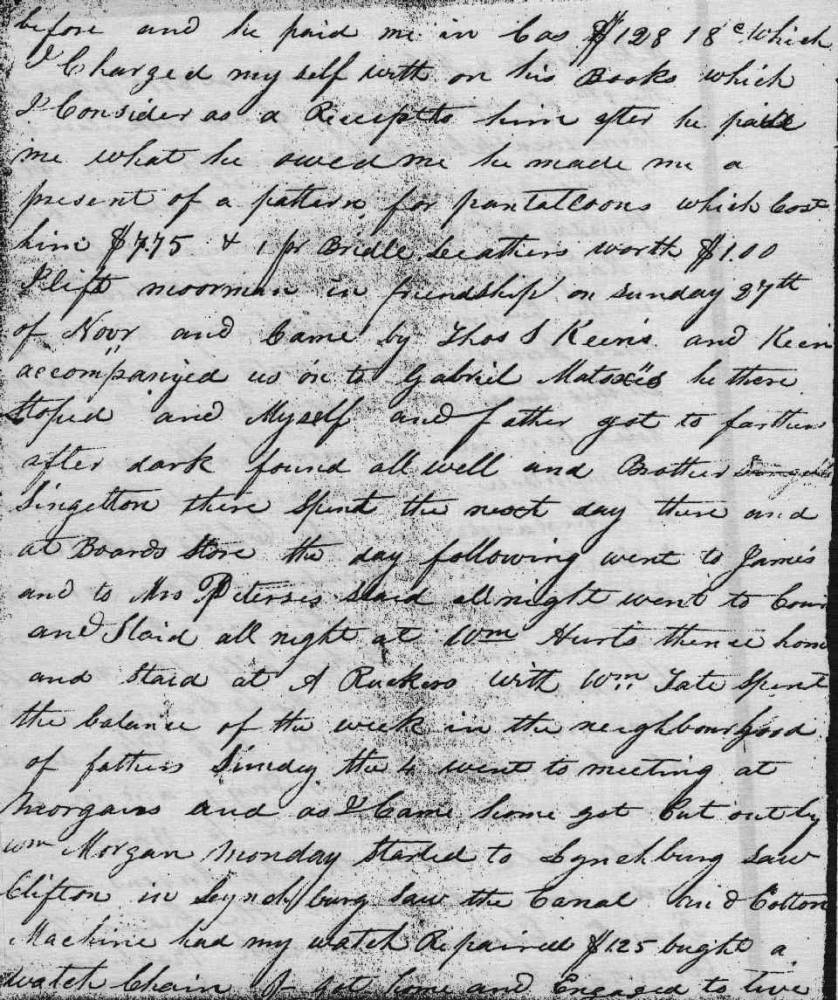 before and he paid me in Cas $128 18c which
I Charged my self with on his Books which
I Consider as a Receipt to him after he paid
me what he owed me he made me a
present of a pattern for pantaloons which Cost
him $7.75 & 1 pr Bridle Leathers worth $1.00
I left moorman in friendship on sunday 27th
of Novr and Came by Thos S Keen's and Keen
accompanyed us on to Gabriel he there
stoped and Myself and father got to fathers
after dark found all well and Brother
Singelton there Spent the next day there and
at Boards Store the day following went to James
and to Mrs staid all night went to
and Staid all night at Wm Hurts thence home
and staid at A Ruckers with Wm Tate Spent
the balance of the week in the neighbourhood
of fathers Sunday the 4 went to meeting at
Morgans and as I Came home got Cut out by
Wm Morgan Monday Started to Lynchburg Saw
Clifton in Lynchburg Saw the Canal and Cotton
Machine had my watch Repaired $1.25 bught a
watch Chain I got home and Engaged to live